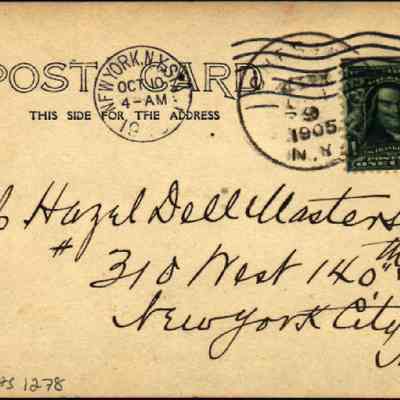 POST CARD
THIS SIDE FOR THE ADDRESS
NEW YORK, N.Y.
OCT 10
4-AM
19
9
1905
N.Y.
Hazel Dell Masters
# 310 West 140th
New York City
1278